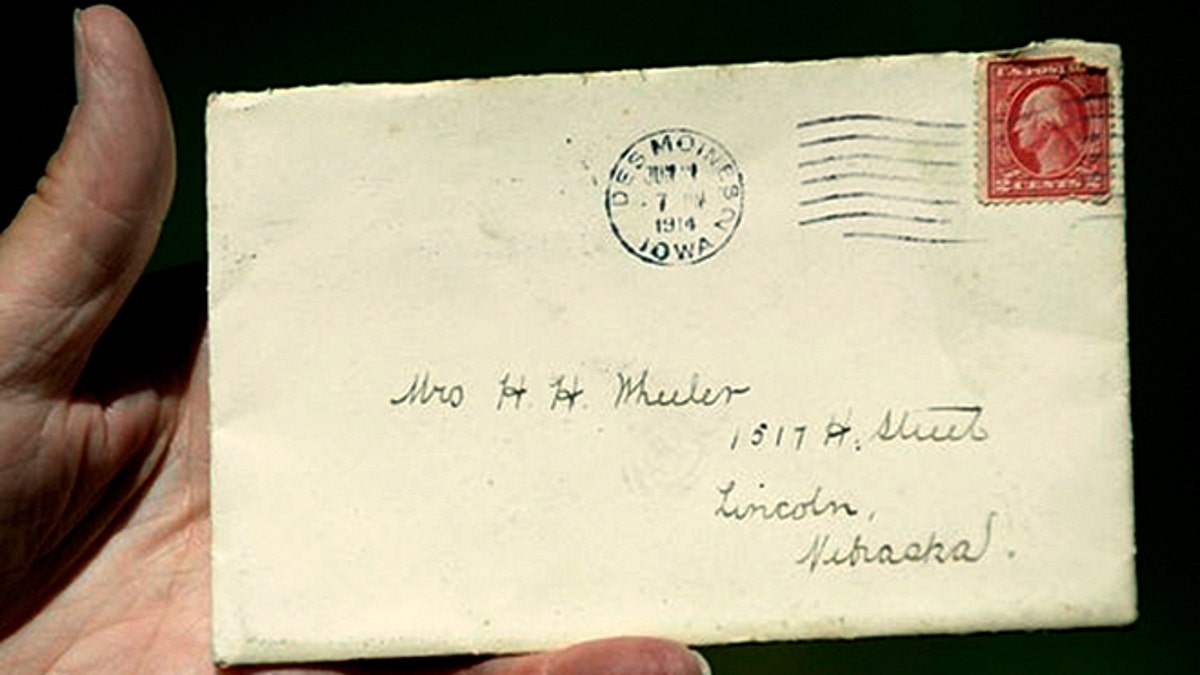 U.S. POSTAGE
2 CENTS 2
DES MOINES
7 PM
1914
IOWA
Mrs H. H. Wheeler
1517 H. Street
Lincoln,
Nebraska.